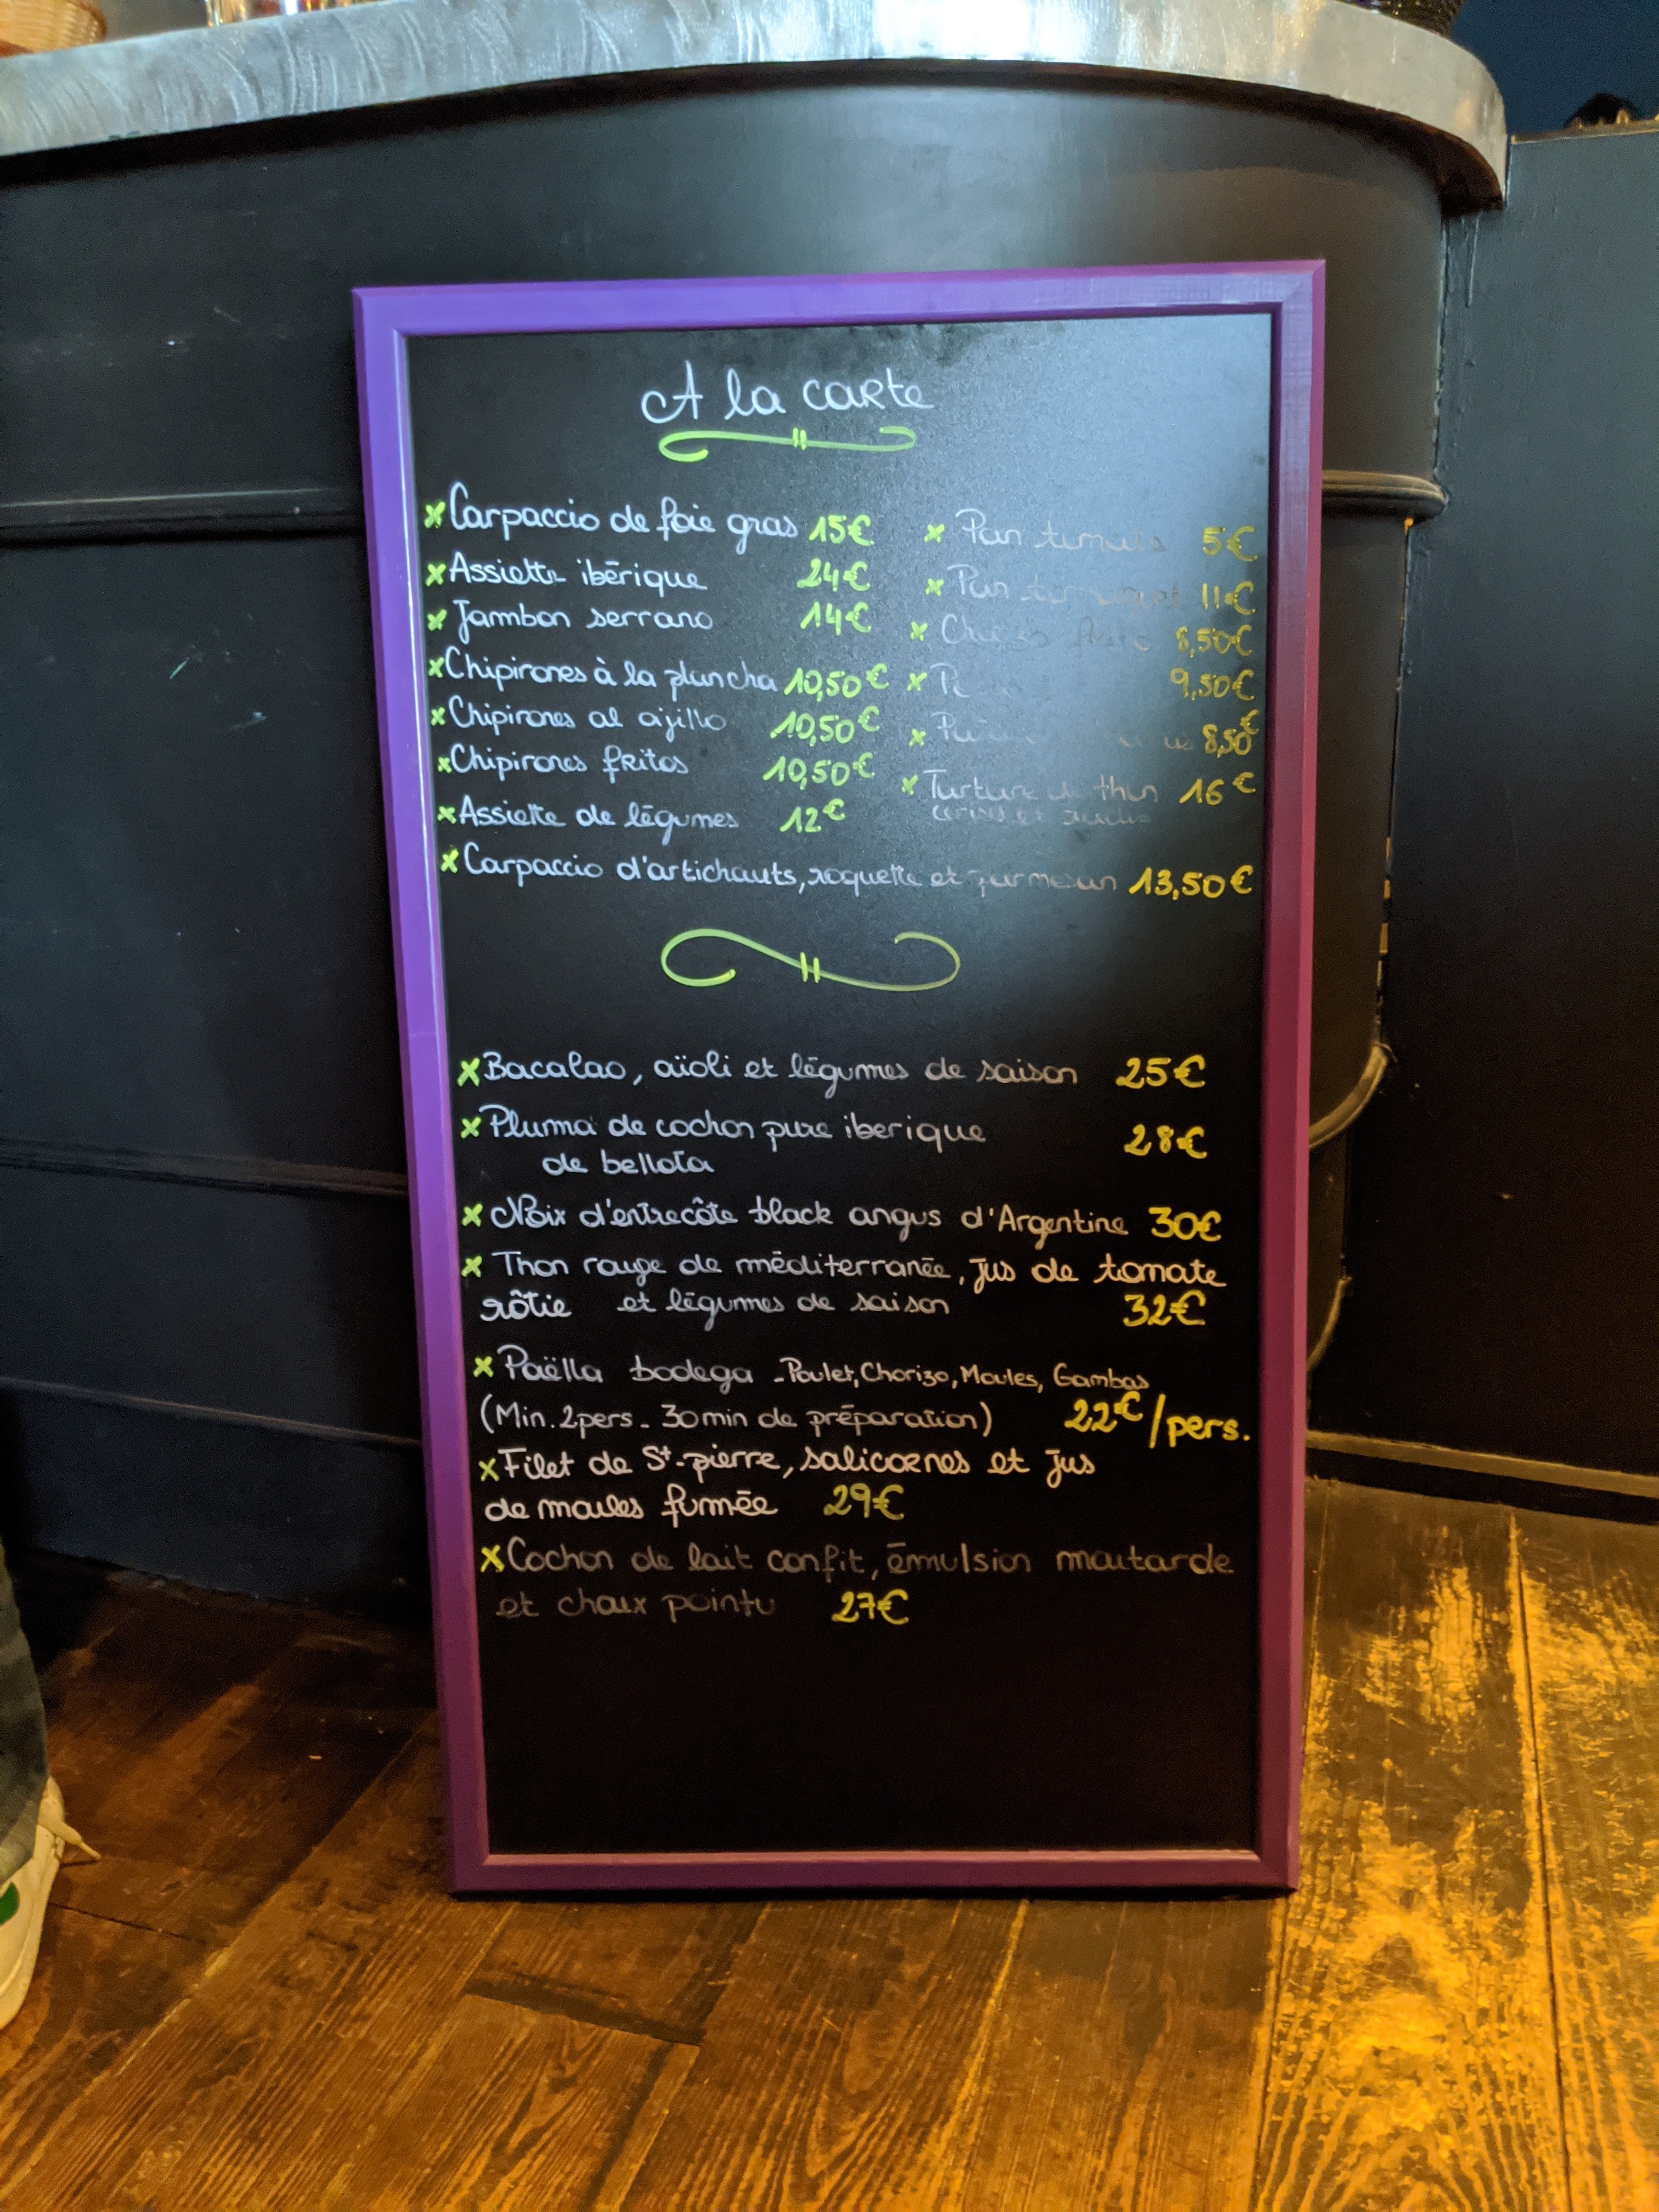 A la carte
x Carpaccio de foie gras 15€
x Assiette ibérique 24€
x Jambon serrano 14€
x Chipirones à la plancha 10,50€
x Chipirones al ajillo 10,50€
x Chipirones fritos 10,50€
x Assiette de légumes 12€
x Pan tomate 5€
x Pan 11€
x 8,50€
x 9,50€
x 8,50€
x Tartare de thon 16€
x Carpaccio d'artichauts, roquette et parmesan 13,50€
x Bacalao, aïoli et légumes de saison 25€
x Pluma de cochon pure iberique 28€
de bellota
x Noix d'entrecôte black angus d'Argentine 30€
x Thon rouge de méditerranée, jus de tomate
rôtie et légumes de saison 32€
x Paëlla bodega - Poulet, Chorizo, Moules, Gambas
(Min. 2pers - 30min de préparation) 22€/pers.
x Filet de St-pierre, salicornes et jus
de moules fumée 29€
x Cochon de lait confit, émulsion moutarde
et choux pointu 27€